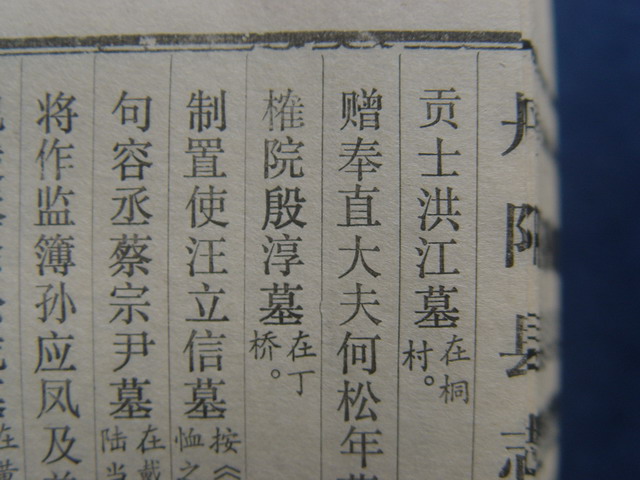 丹阳县志
贡士洪江墓在桐村。
赠奉直大夫何松年
榷院殷淳墓在丁桥。
制置使汪立信墓按《
恤之
句容丞蔡宗尹墓在戴
陆当
将作监簿孙应凤及